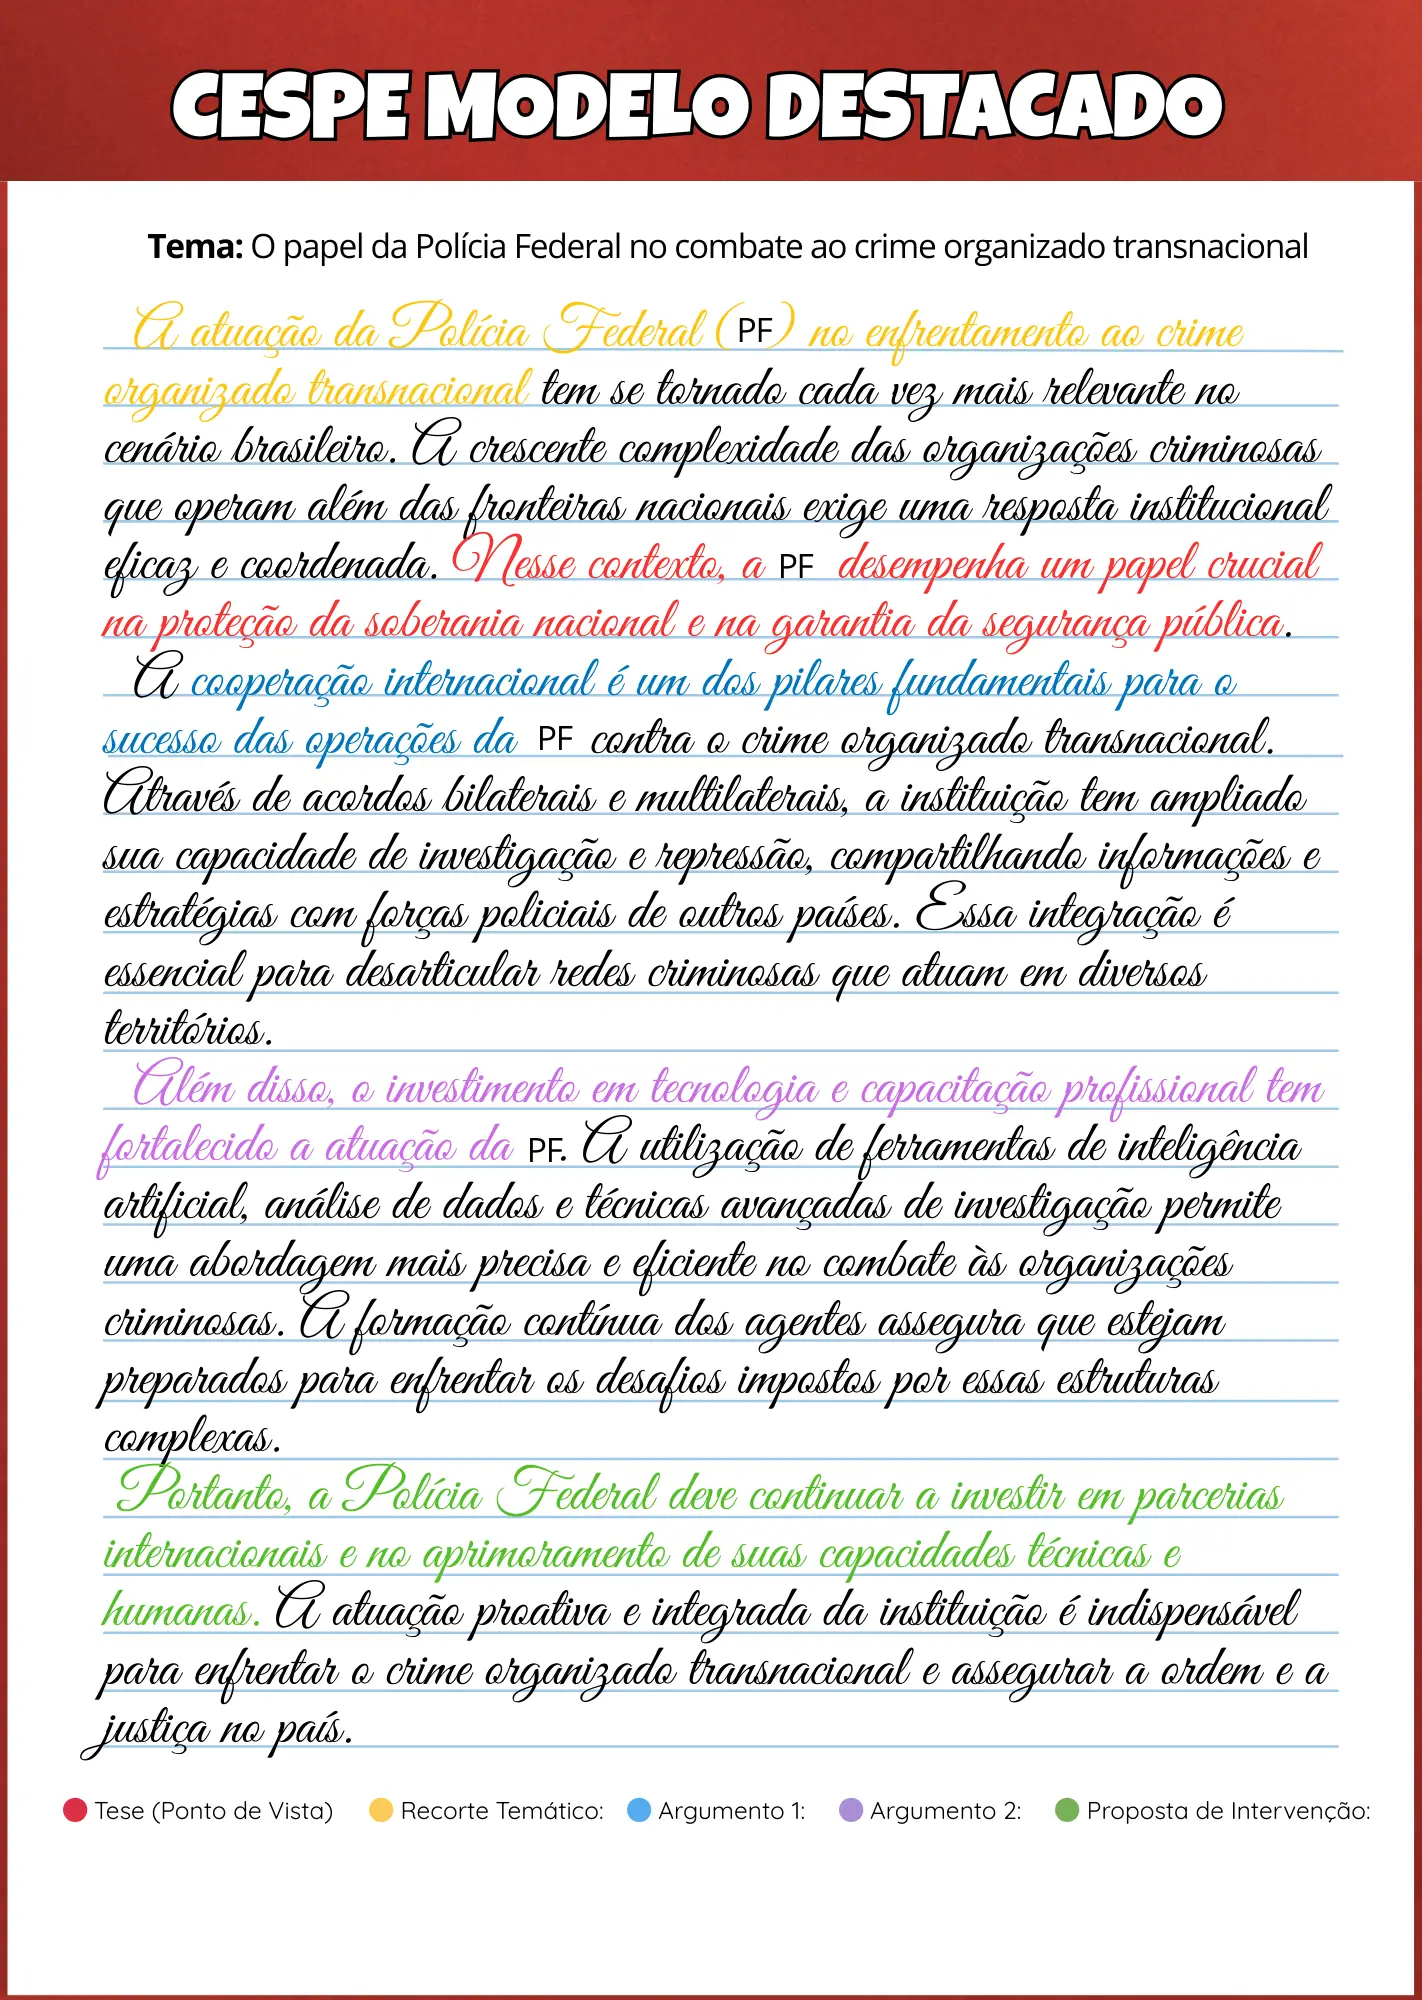 CESPE MODELO DESTACADO
Tema: O papel da Polícia Federal no combate ao crime organizado transnacional
A atuação da Polícia Federal (PF) no enfrentamento ao crime
organizado transnacional tem se tornado cada vez mais relevante no
cenário brasileiro. A crescente complexidade das organizações criminosas
que operam além das fronteiras nacionais exige uma resposta institucional
eficaz e coordenada. Nesse contexto, a PF desempenha um papel crucial
na proteção da soberania nacional e na garantia da segurança pública.
A cooperação internacional é um dos pilares fundamentais para o
sucesso das operações da PF contra o crime organizado transnacional.
Através de acordos bilaterais e multilaterais, a instituição tem ampliado
sua capacidade de investigação e repressão, compartilhando informações e
estratégias com forças policiais de outros países. Essa integração é
essencial para desarticular redes criminosas que atuam em diversos
territórios.
Além disso, o investimento em tecnologia e capacitação profissional tem
fortalecido a atuação da PF. A utilização de ferramentas de inteligência
artificial, análise de dados e técnicas avançadas de investigação permite
uma abordagem mais precisa e eficiente no combate às organizações
criminosas. A formação contínua dos agentes assegura que estejam
preparados para enfrentar os desafios impostos por essas estruturas
complexas.
Portanto, a Polícia Federal deve continuar a investir em parcerias
internacionais e no aprimoramento de suas capacidades técnicas e
humanas. A atuação proativa e integrada da instituição é indispensável
para enfrentar o crime organizado transnacional e assegurar a ordem e a
justiça no país.
Tese (Ponto de Vista) Recorte Temático: Argumento 1: Argumento 2: Proposta de Intervenção: